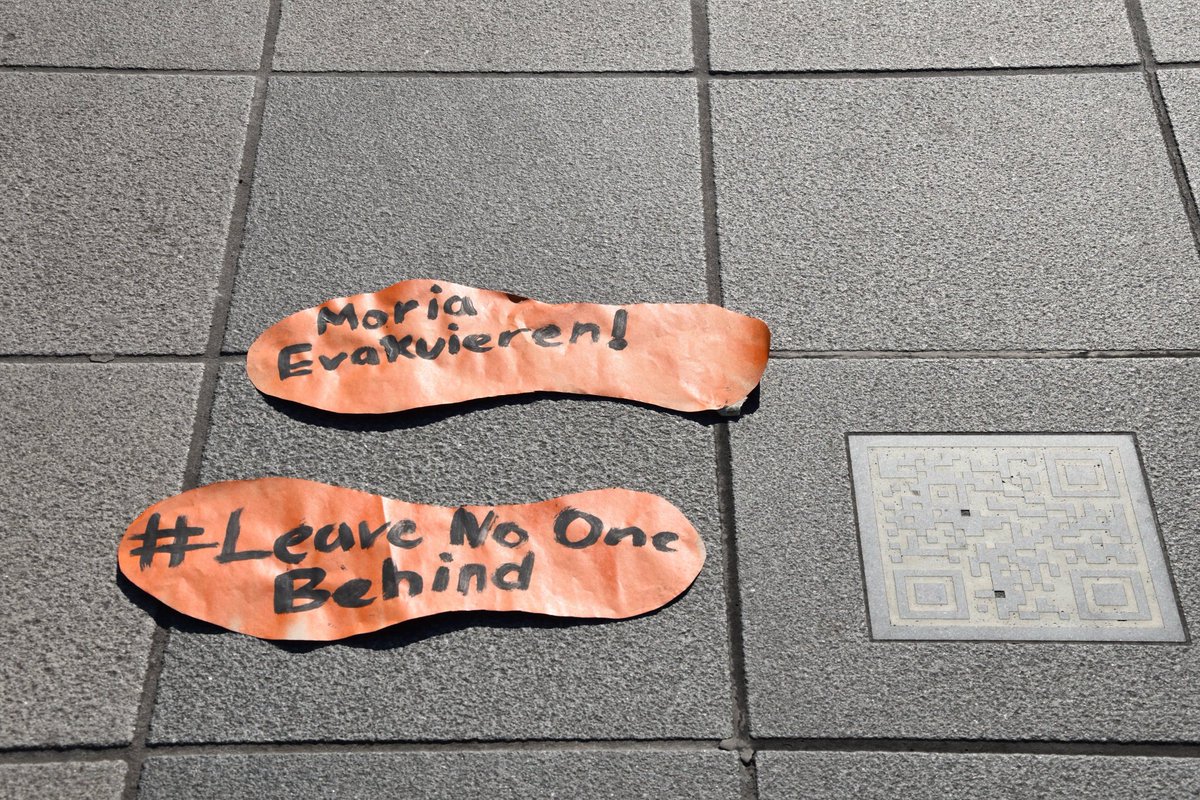 Moria
Evakuieren!
#Leave No One
Behind